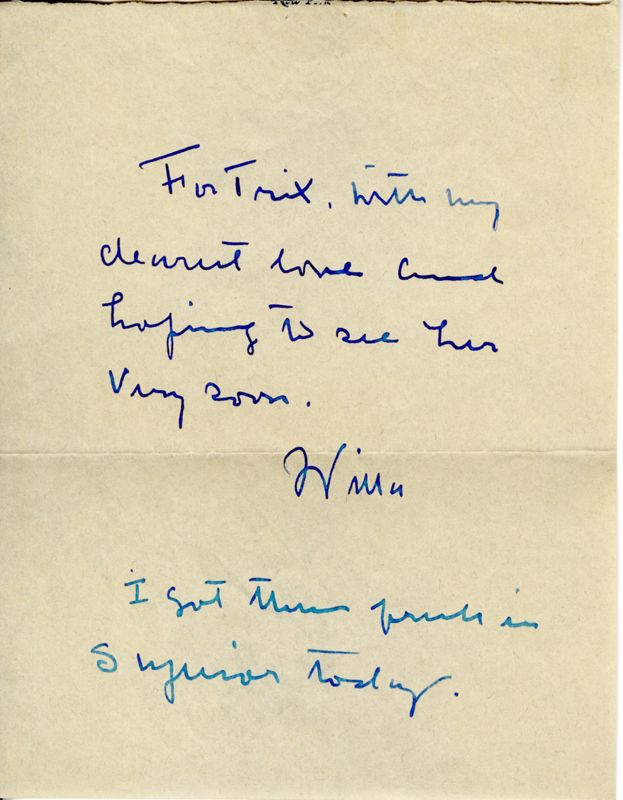 New York
For Trix, with my
dearest love and
hoping to see her
very soon.
Willa
I got these fruits in
Superior today.